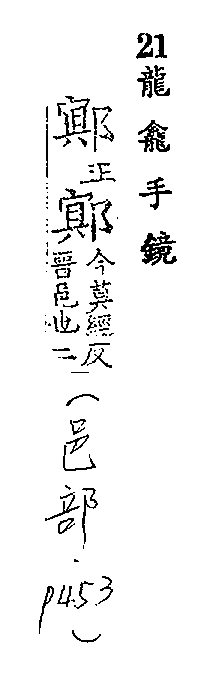 21龍龕手鏡
鄍正鄍今莫經反
晉邑也二
（邑部.
p453）